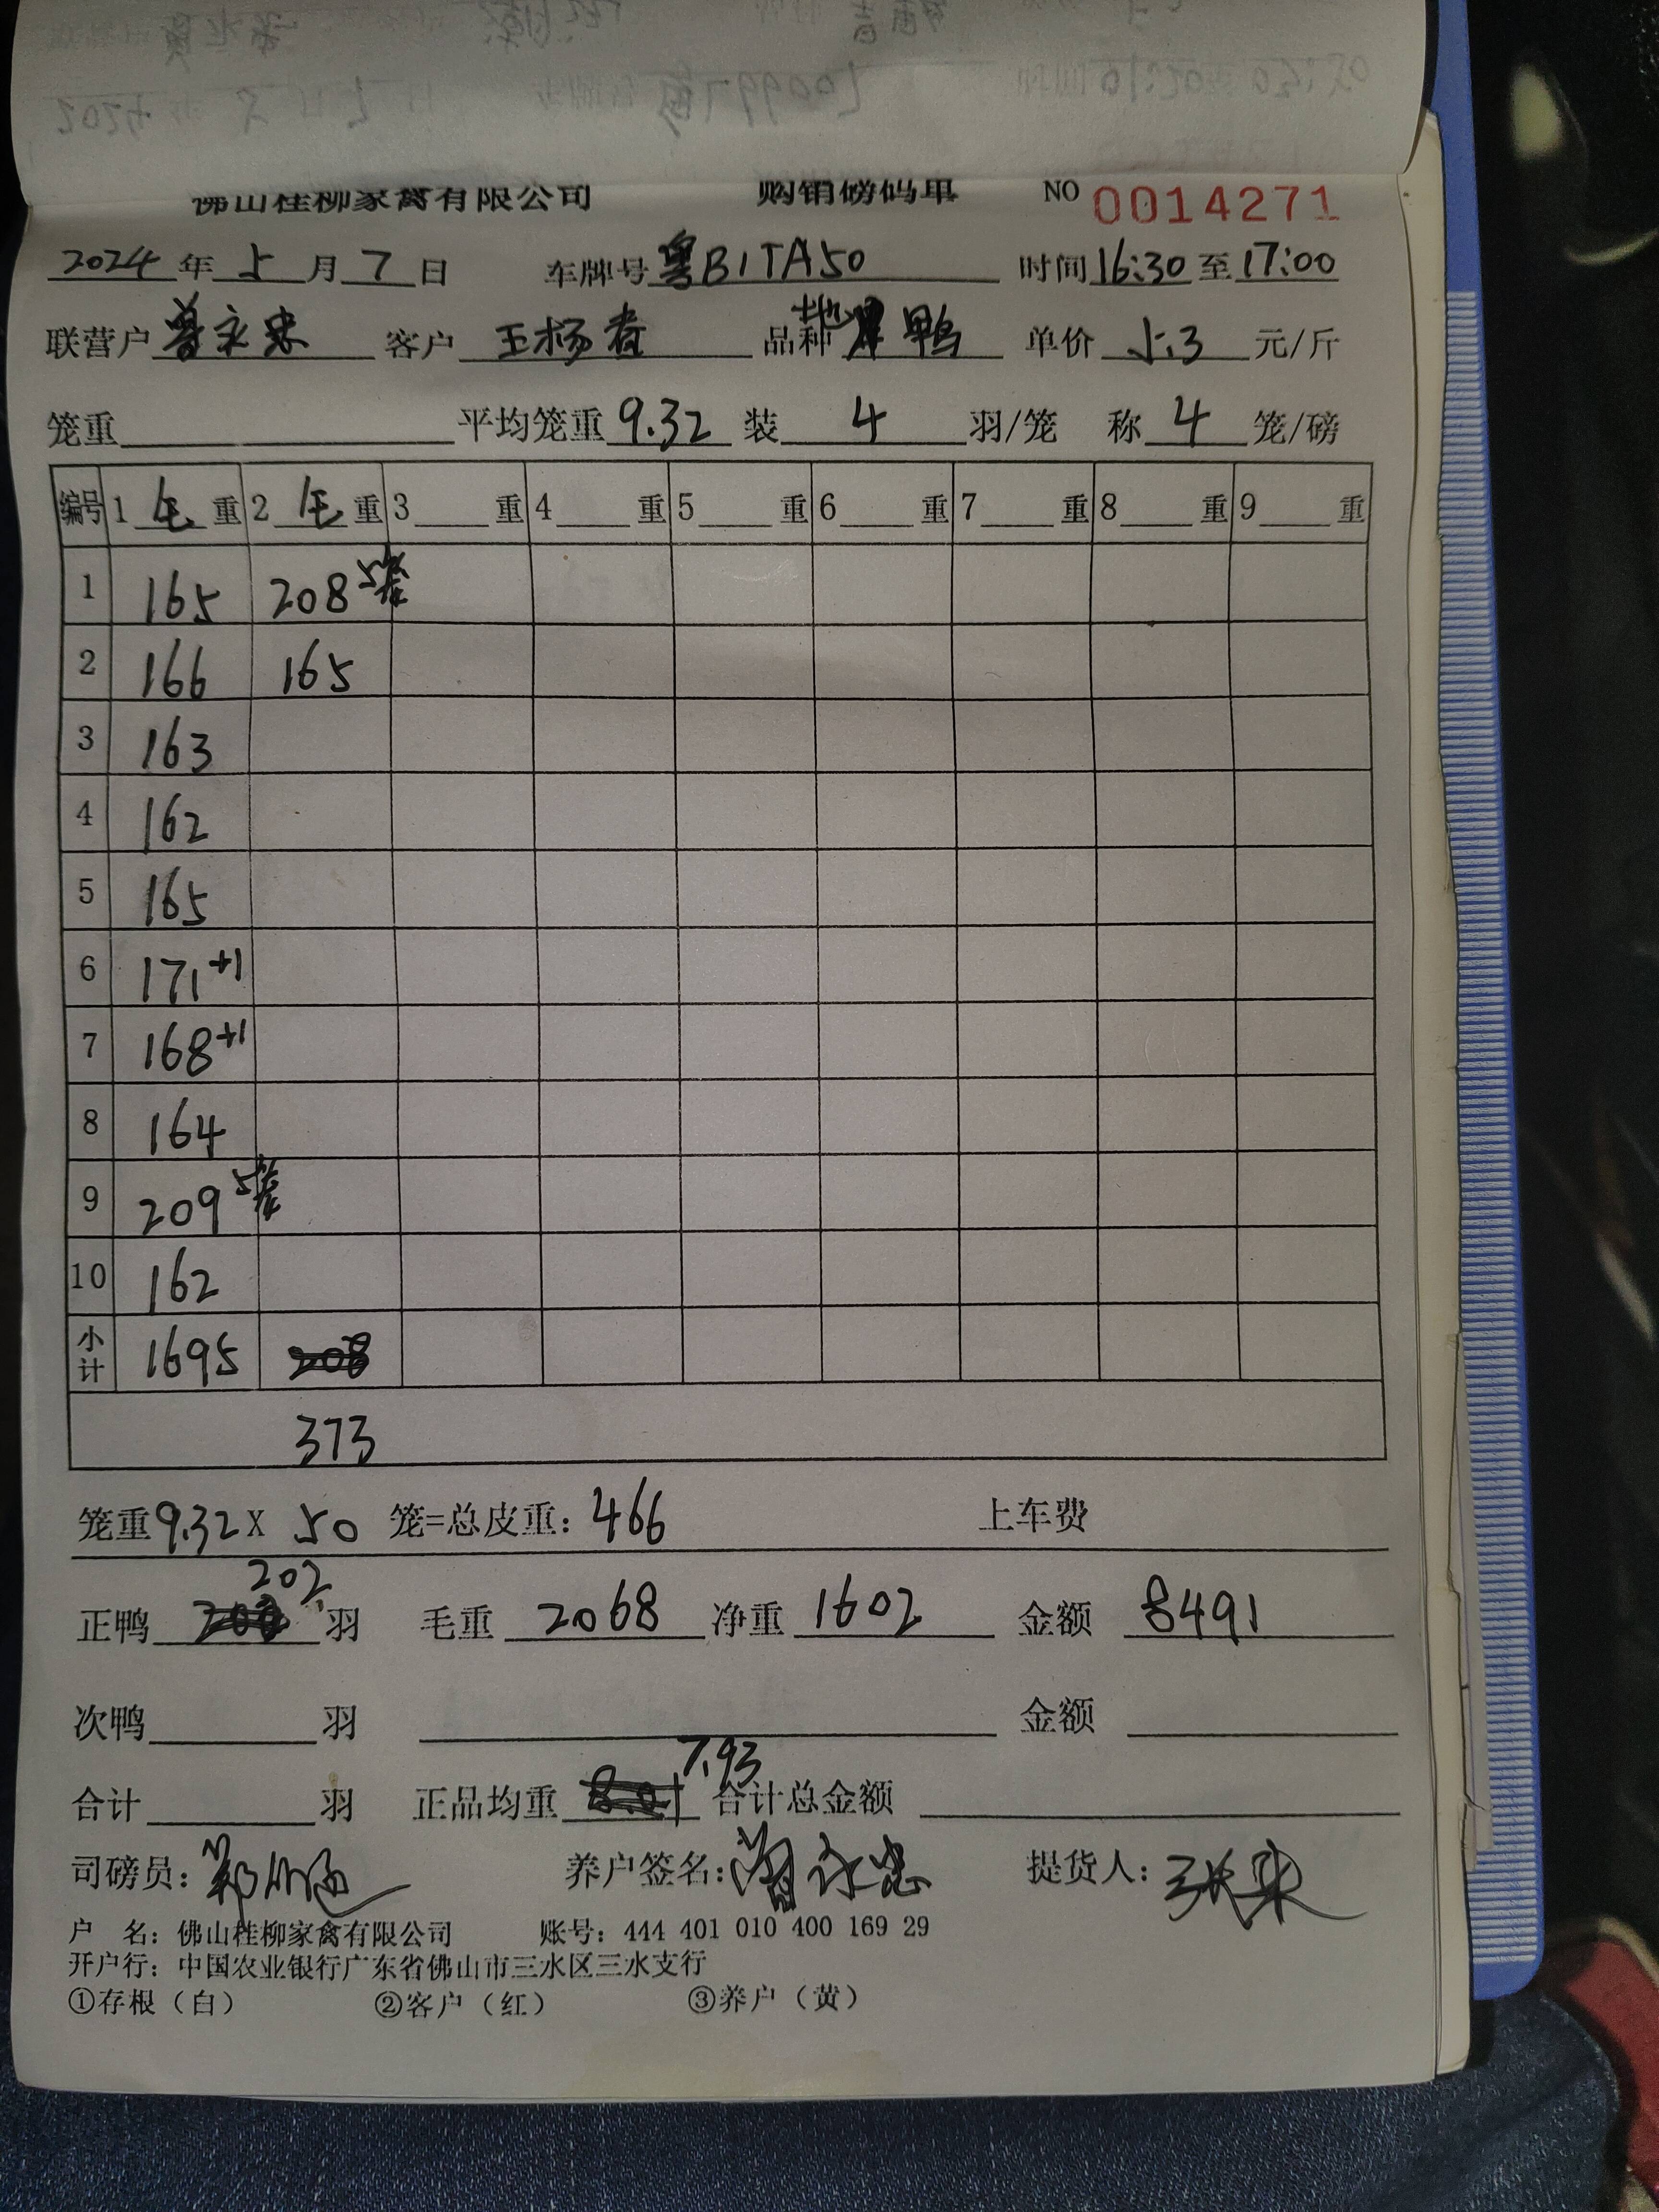 佛山桂柳家禽有限公司 购销磅码单 NO 0014271
2024 年 5 月 7 日 车牌号 粤B1TA50 时间 16:30 至 17:00
联营户 曾永忠 客户 王杨春 品种 鸭 单价 5.3 元/斤
笼重 平均笼重 9.32 装 4 羽/笼 称 4 笼/磅
编号 1 毛 重 2 毛 重 3 重 4 重 5 重 6 重 7 重 8 重 9 重
1 165 208 5笼
2 166 165
3 163
4 162
5 165
6 171+1
7 168+1
8 164
9 209 5笼
10 162
小计 1695 208
373
笼重 9.32 X 50 笼=总皮重: 466 上车费
正鸭 202 羽 毛重 2068 净重 1602 金额 8491
次鸭 羽 金额
合计 羽 正品均重 8.01 7.93 合计总金额
司磅员: 养户签名: 曾永忠 提货人:
户 名: 佛山桂柳家禽有限公司 账号: 444 401 010 400 169 29
开户行: 中国农业银行广东省佛山市三水区三水支行
①存根(白) ②客户(红) ③养户(黄)